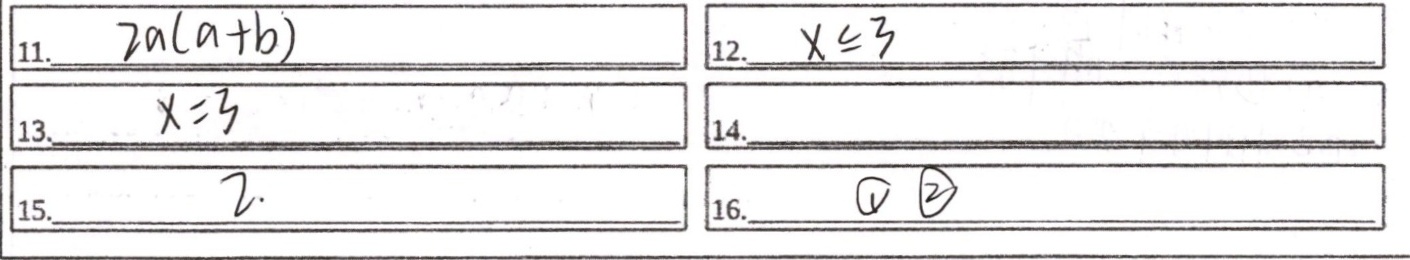 11. 2a(a+b)
12. x≤3
13. x=3
14.
15. 2.
16. ① ②